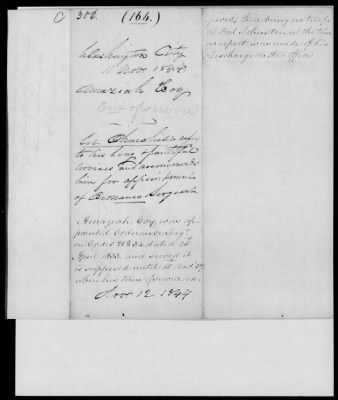 C 306. (164.)
Washington City
Nov 1844
Amaziah Coy
Out of service
Col. Churchill refers
to his long & faithful
services and recommends
him for appointment
of Ordnance Sergeant
Amaziah Coy, was ap-
pointed Ordnance Sergt
in Order No 32 dated 25
April 1833. and served it
is supposed until
when his term of service ex-
Nov 12 1844
pired, there being no troops
at Fort Johnston at the time
no report was made of his
discharge to this office